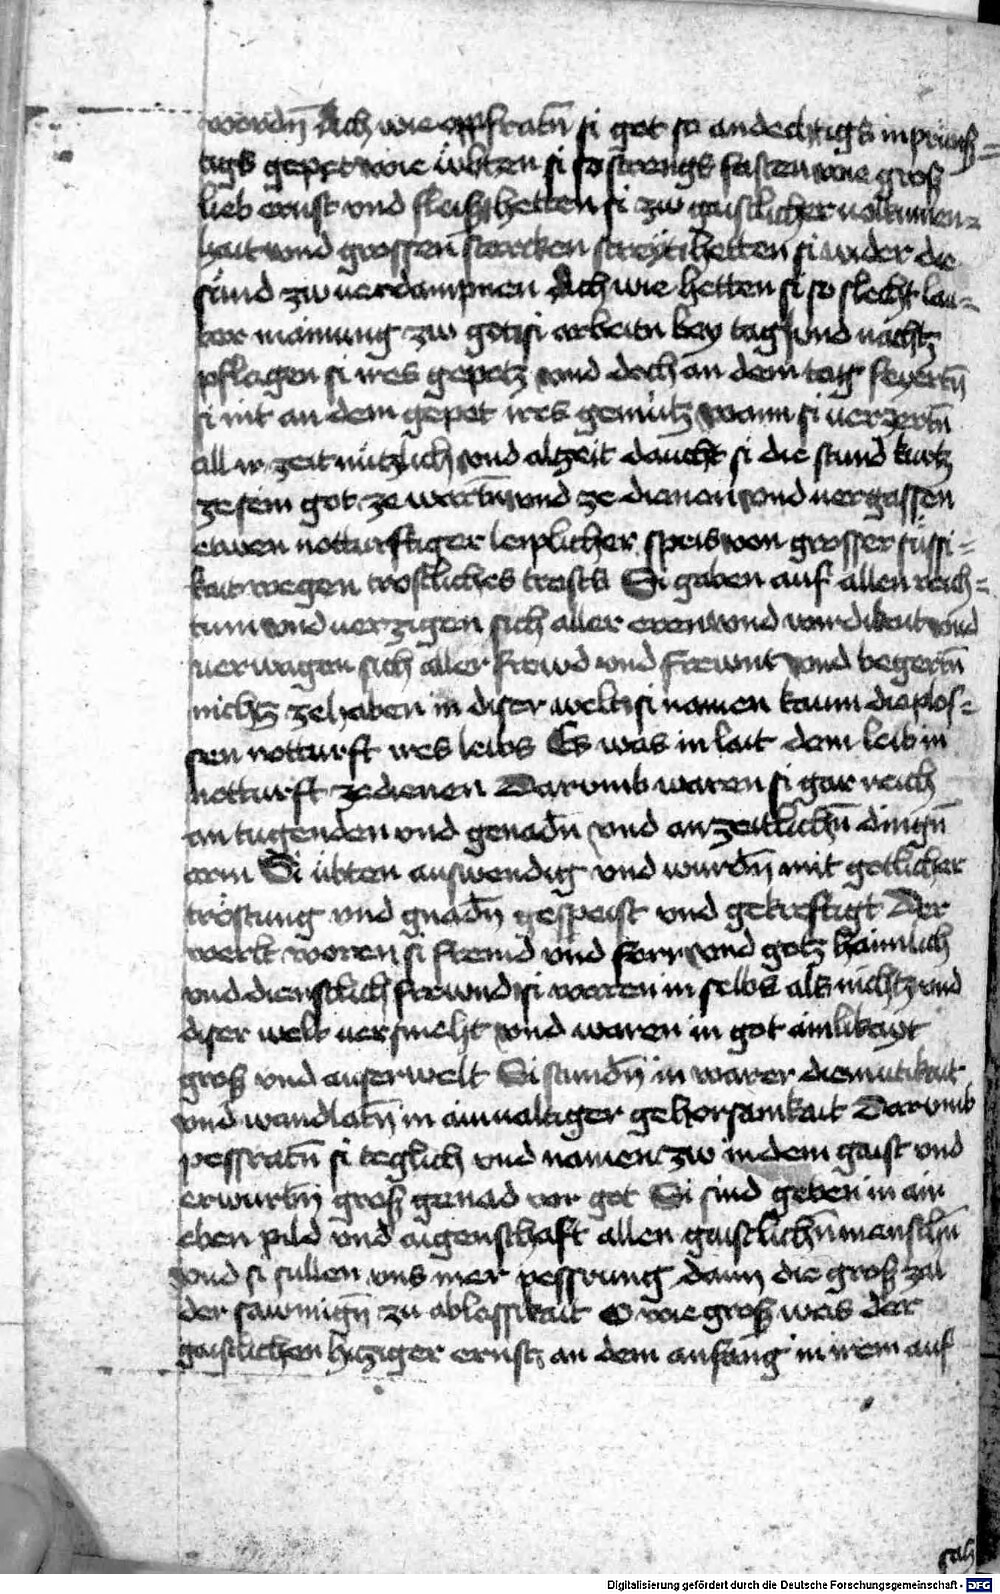 wordn̄ Ach wie opffratn̄ si got so andechtigs inprünsz=
tigs gepet wie übten si so strengs fasten wie grosz
lieb ernst vnd fleisz hetten si zw gaistlicher uolkumen=
hait vnd grossen starcken streyt hetten si wider die
sünd zw uerdampnen Ach wie hetten si so slecht lau=
ter mainung zw got si arbaitn bey tag vnd nachtz
pflagen si ires gepetz vnd doch an dem tag feyertn̄
si nit an dem gepet ires gemütz wann si uerzertn̄
all ir zeit nützlich vnd altzeit daucht si die stund kurtz
ze sein got ze wartn̄ vnd ze dienen vnd uergassen
etwen notturftiger leiplicher speis von grosser süssi=
kait wegen trostliches trosts Si gaben auf allen reich=
tum vnd uerzigen sich aller eren vnd wirdikait vnd
uerwagen sich aller frewd vnd frewnt vnd begertn̄
nichtz ze haben in diser welt si namen kaum die plos=
sen notturft ires leibs Es was in lait dem leib in
notturft ze dienen Darumb waren si gar reich
an tugenden vnd genadn̄ vnd an zeitlichn̄ dingn̄
arm Si übten auswendig vnd wurdn̄ mit gotlicher
tröstung vnd gnadn̄ gespeist vnd gekreftigt Der
werlt woren si fremd vnd ferr vnd gotz haimlich
vnd dienstlich frewnd si warren in selbs als nichtz vnd
diser welt uersmeht vnd waren in got ainlikayt
grosz vnd auserwelt Si stundn̄ in warer diemutikait
vnd wandlatn̄ in ainualtiger gehorsamkait Darumb
pessratn̄ si teglich vnd namen zw in dem gaist vnd
erwurbn̄ grosz genad vor got Si sind geben in ain
eben pild vnd aigenschaft allen gaistlichn̄ menschn̄
vnd si sullen vns mer pessrung dann die grosz zal
der sawmign̄ zu ablossikait O wie grosz was der
gaistlichen hitziger ernst an dem anfang in irem auf
satz
Digitalisierung gefördert durch die Deutsche Forschungsgemeinschaft - DFG